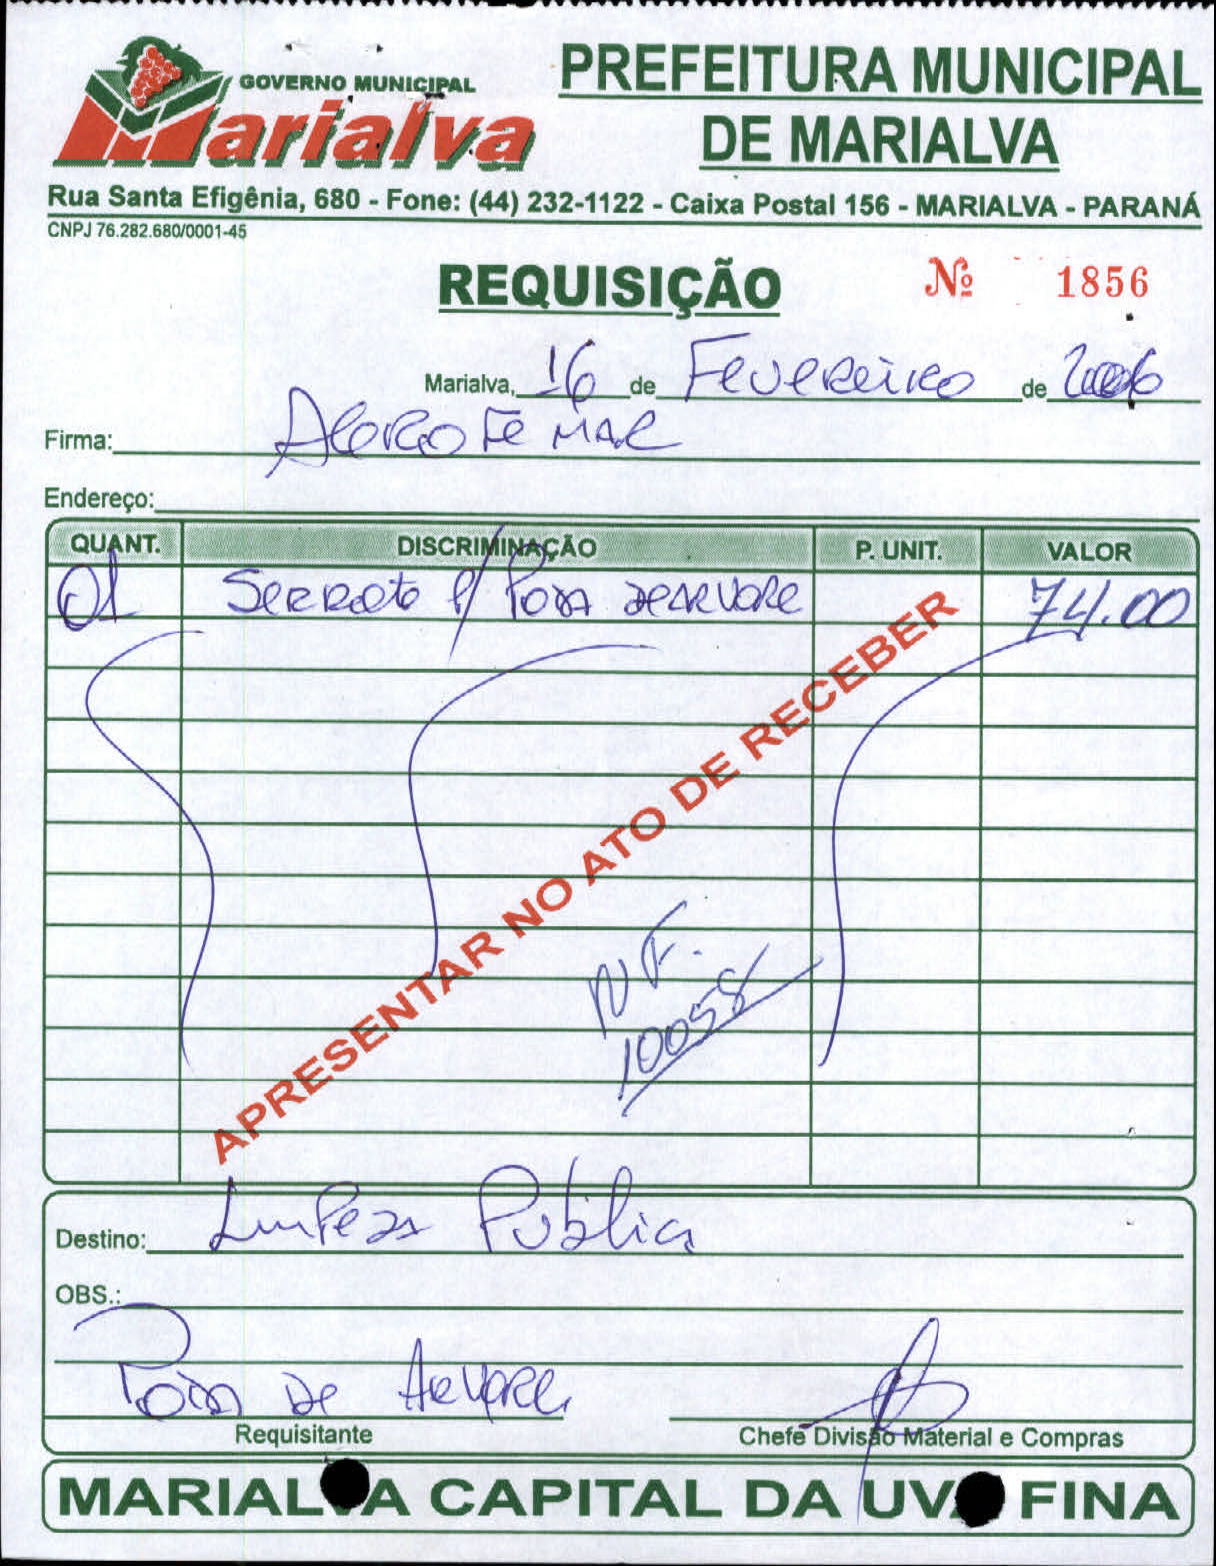 GOVERNO MUNICIPAL
Marialva
PREFEITURA MUNICIPAL
DE MARIALVA
Rua Santa Efigênia, 680 - Fone: (44) 232-1122 - Caixa Postal 156 - MARIALVA - PARANÁ
CNPJ 76.282.680/0001-45
REQUISIÇÃO Nº 1856
Marialva, 16 de Fevereiro de 2006
Firma:
Endereço:
QUANT. DISCRIMINAÇÃO P. UNIT. VALOR
01 Serrote p/ Poda de Arvore 74.00
APRESENTAR NO ATO DE RECEBER
N F.
10058
Destino: Limpeza Publica
OBS.:
Poda de Arvore
Requisitante Chefe Divisão Material e Compras
MARIALVA CAPITAL DA UVA FINA